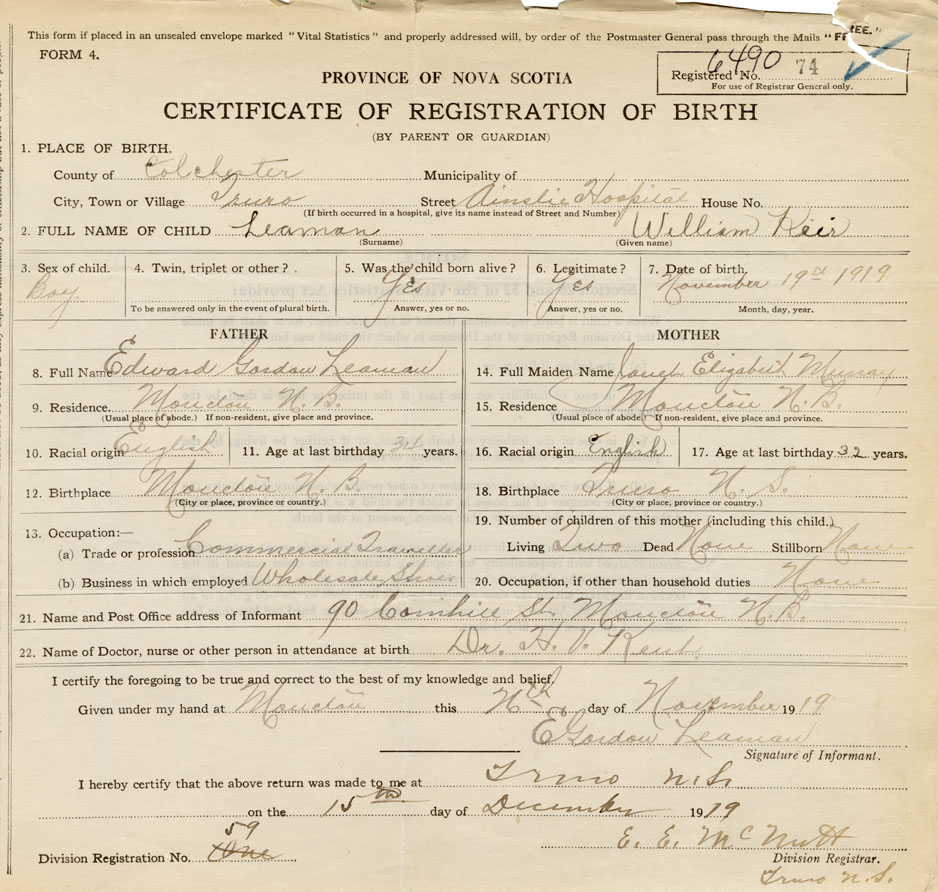 This form if placed in an unsealed envelope marked "Vital Statistics" and properly addressed will, by order of the Postmaster General pass through the Mails "FREE."
FORM 4.
6490 74
Registered No.
For use of Registrar General only.
PROVINCE OF NOVA SCOTIA
CERTIFICATE OF REGISTRATION OF BIRTH
(BY PARENT OR GUARDIAN)
1. PLACE OF BIRTH.
County of Colchester Municipality of
City, Town or Village Truro Street Ainslie Hospital House No.
(If birth occurred in a hospital, give its name instead of Street and Number)
2. FULL NAME OF CHILD Leaman William Keir
(Surname) (Given name)
3. Sex of child. 4. Twin, triplet or other? 5. Was the child born alive? 6. Legitimate? 7. Date of birth.
Boy. Yes Yes November 19 1919
To be answered only in the event of plural birth. Answer, yes or no. Answer, yes or no. Month, day, year.
FATHER MOTHER
8. Full Name Edward Gordon Leaman 14. Full Maiden Name Janet Elizabeth Murray
9. Residence. Moncton N.B. 15. Residence Moncton N.B.
(Usual place of abode.) If non-resident, give place and province. (Usual place of abode.) If non-resident, give place and province.
10. Racial origin English 11. Age at last birthday years. 16. Racial origin English 17. Age at last birthday 32 years.
12. Birthplace Moncton N.B. 18. Birthplace Truro N.S.
(City or place, province or country.) (City or place, province or country.)
13. Occupation:— 19. Number of children of this mother (including this child.)
(a) Trade or profession Commercial Traveller Living Two Dead None Stillborn None
(b) Business in which employed Wholesale Shoes 20. Occupation, if other than household duties None
21. Name and Post Office address of Informant 90 Cornhill St. Moncton N.B.
22. Name of Doctor, nurse or other person in attendance at birth Dr. H. V. Kent.
I certify the foregoing to be true and correct to the best of my knowledge and belief.
Given under my hand at Moncton this day of November 1919.
E Gordon Leaman
Signature of Informant.
I hereby certify that the above return was made to me at Truro N.S.
on the 15th day of December 1919
59
E. E. McNutt
Division Registration No. One
Division Registrar.
Truro N.S.